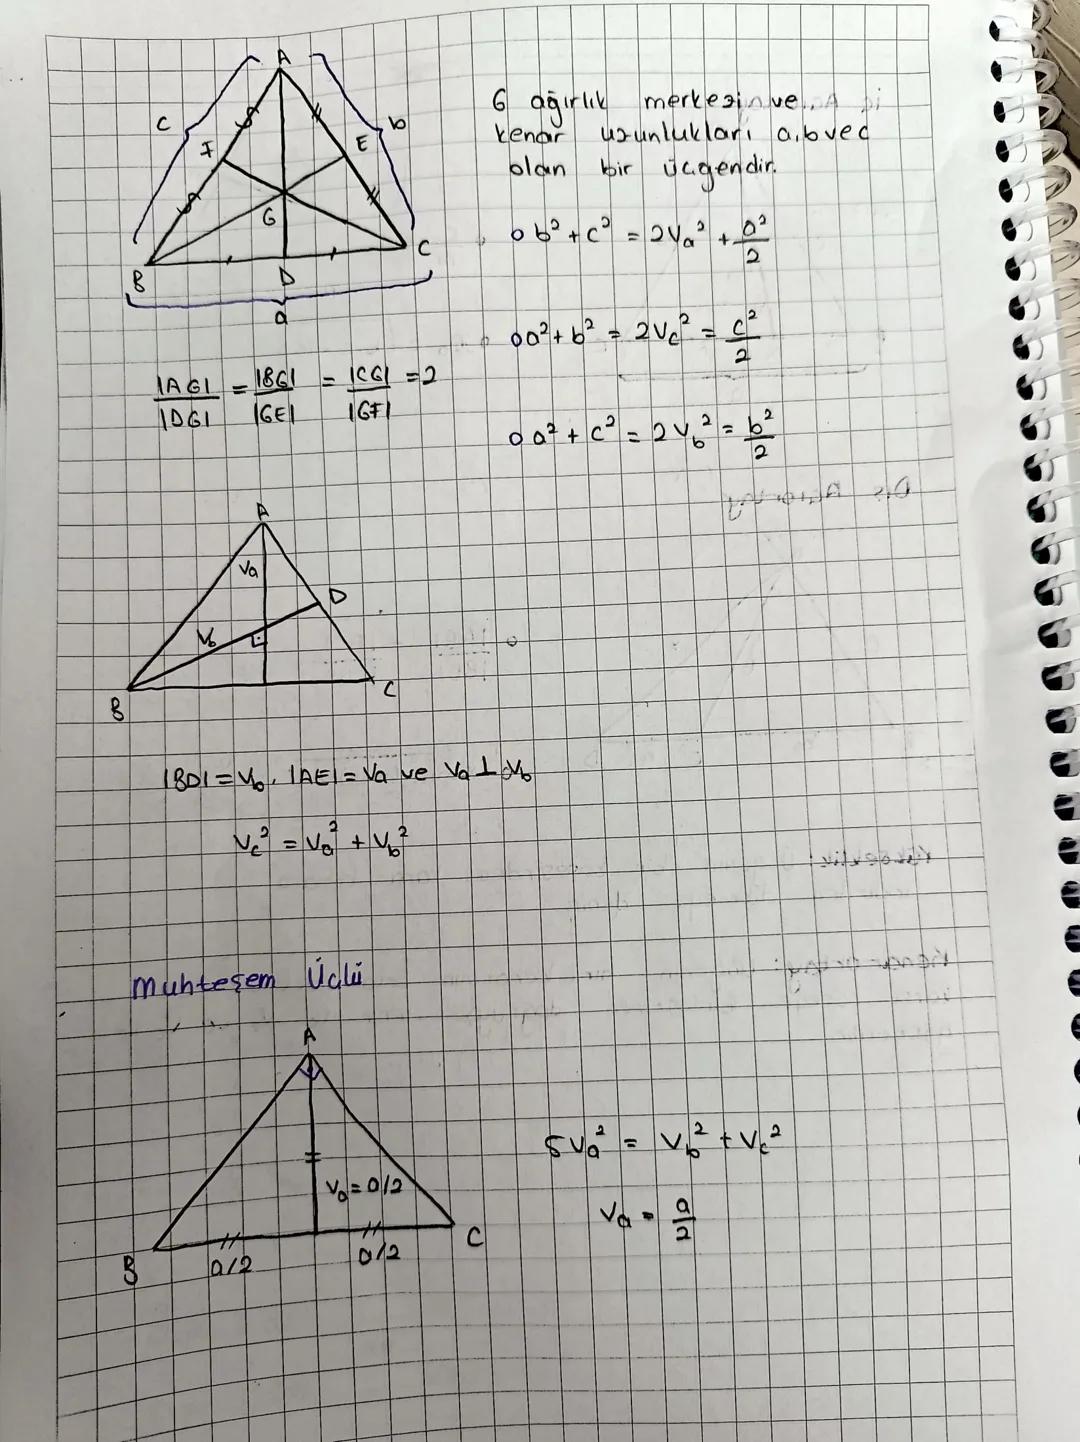 A
c
b
F
E
G
B
D
C
a
G ağırlık merkezin ve
kenar uzunlukları a,b vec
olan bir üçgendir.
o b² + c² = 2Va² + a²/2
o a² + b² = 2Vc² = c²/2
o a² + c² = 2Vb² = b²/2
|AG|/|DG| = |BG|/|GE| = |CG|/|GF| = 2
A
Va
D
Vb
B
C
|BD| = Vb, |AE| = Va ve Va ⊥ Vb
Vc² = Va² + Vb²
Muhteşem Üçlü
A
Va = a/2
B
a/2
a/2
C
5Va² = Vb² + Vc²
Va = a/2